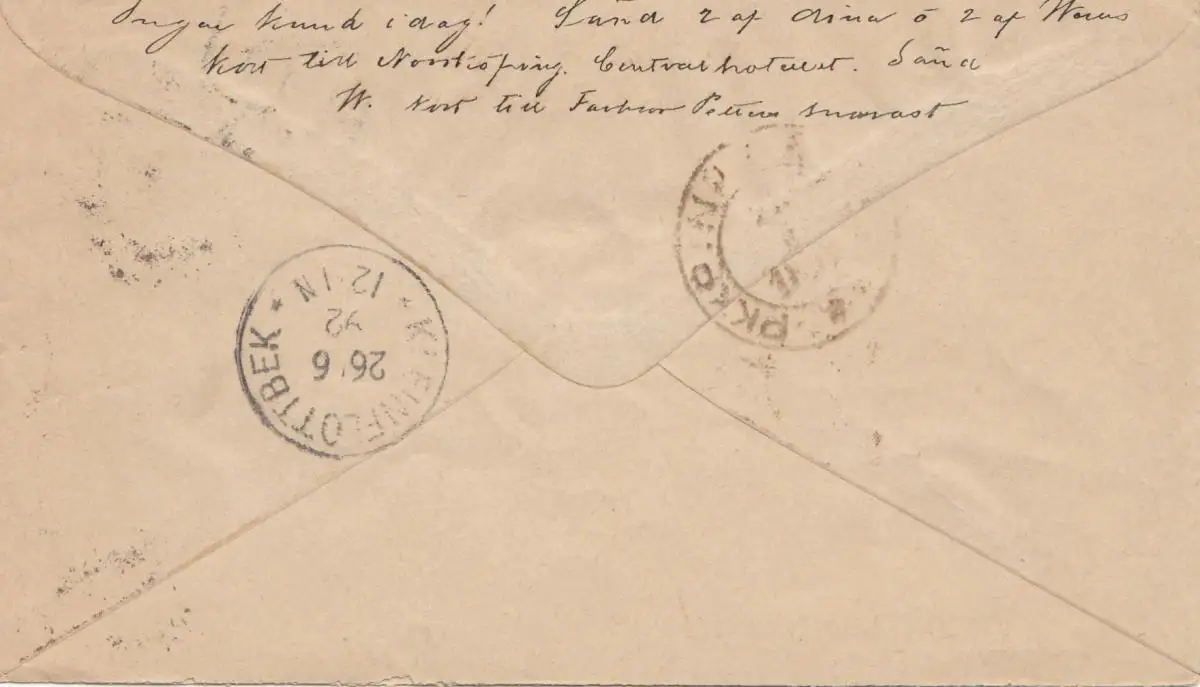 Ingen kund i dag! Sänd 2 af dina o 2 af Weras
kort till Norrköping. Centralhotellet. Sänd
W. kort till Farbror Petter snarast
KLEINFLOTTBEK
* 12-1N *
26 6
92
PKXPNo